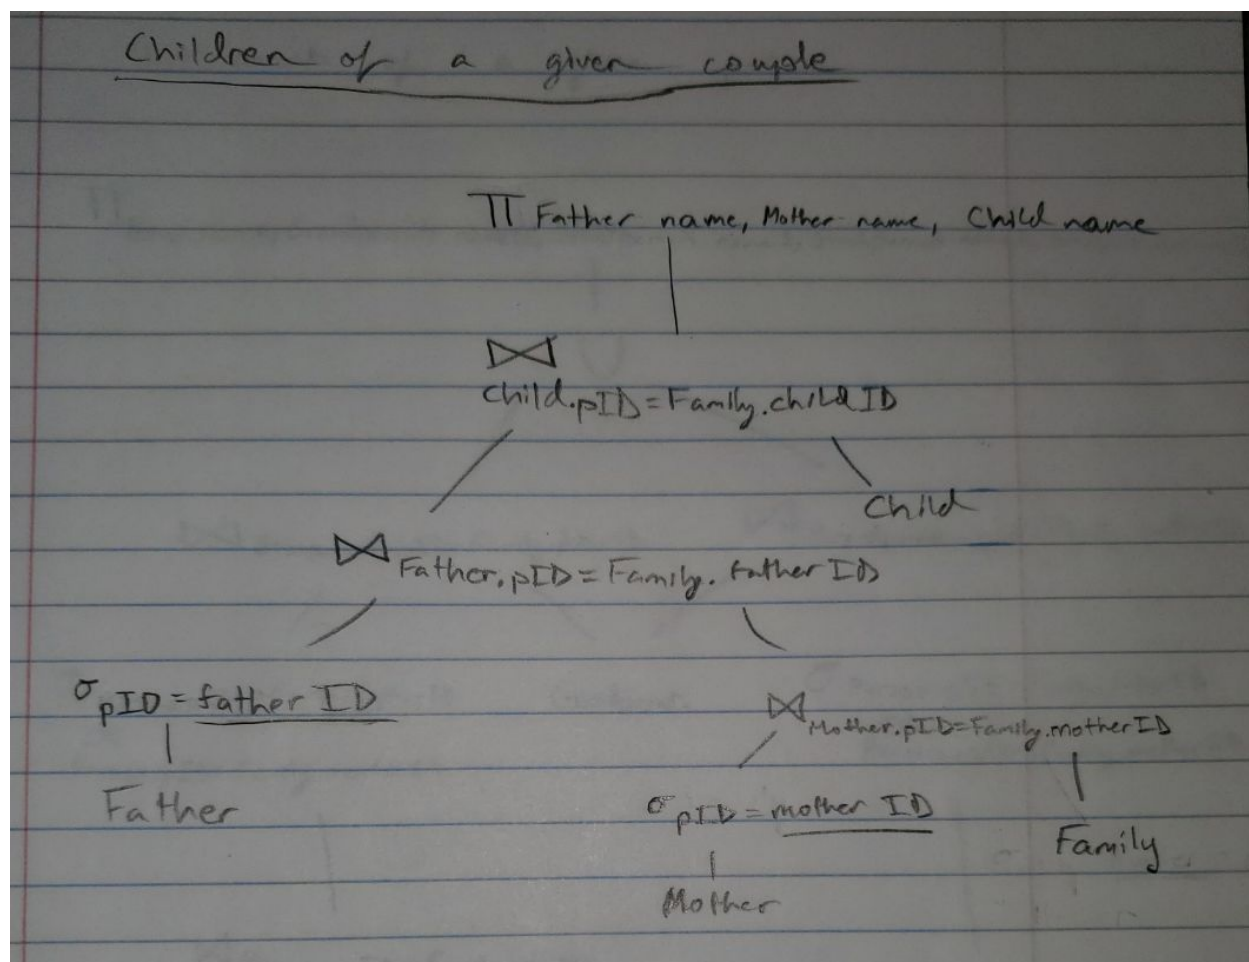 Children of a given couple
π Father name, Mother name, Child name
⋈
Child.pID = Family.childID
Child
⋈ Father.pID = Family.fatherID
σ pID = father ID
⋈ Mother.pID=Family.motherID
Father
σ pID = mother ID
Family
Mother